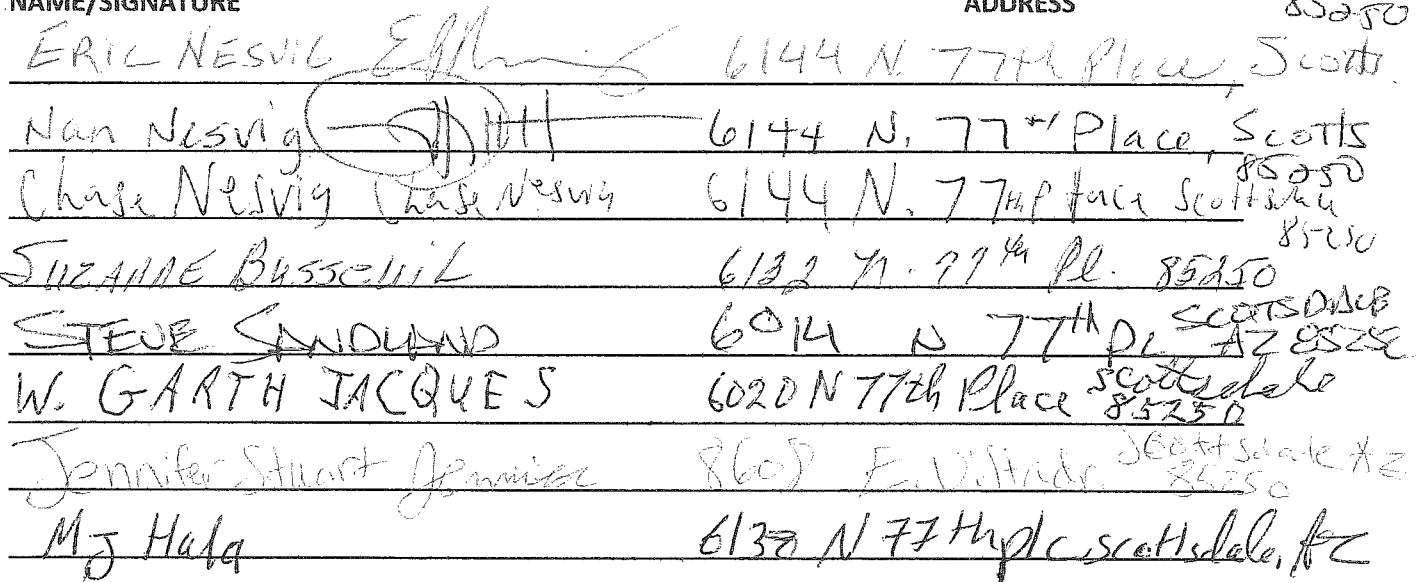 NAME/SIGNATURE ADDRESS 85250
ERIC NESVIG 6144 N. 77th Place, Scotts.
Nan Nesvig 6144 N. 77th Place, Scotts
85250
Chase Nesvig Chase Nesvig 6144 N. 77th Place Scottsdale
85250
SUZANNE 6132 N. 77th Pl. 85250
STEVE SANDLAND 6014 N 77th PL SCOTTSDALE
AZ
W. GARTH JACQUES 6020 N 77th Place Scottsdale
85250
Jennifer Stuart 8608 E. Scottsdale AZ
85250
MJ Hala N 77th plc, scottsdale, AZ